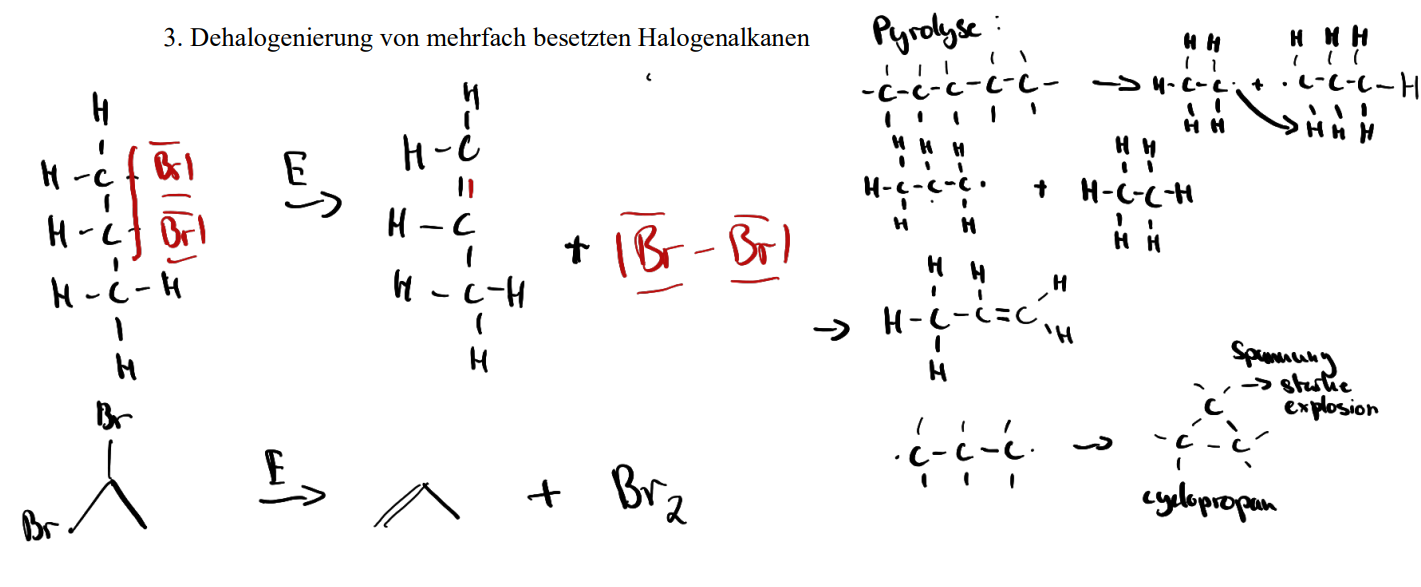 3. Dehalogenierung von mehrfach besetzten Halogenalkanen
H
H-C-Br
H-C-Br
H-C-H
H
E
H
H-C
||
H-C
H-C-H
H
+ |Br-Br|
Br
Br
E
+ Br2
Pyrolyse:
-C-C-C-C-C-
H H
H-C-C· +
H H
H H H
·C-C-C-H
H H H
H H H
H-C-C-C·
H H
+
H H
H-C-C-H
H H
H H
H-C-C=C
H
H
H
·C-C-C·
C
C-C
Spannung
-> starke
explosion
cyclopropan